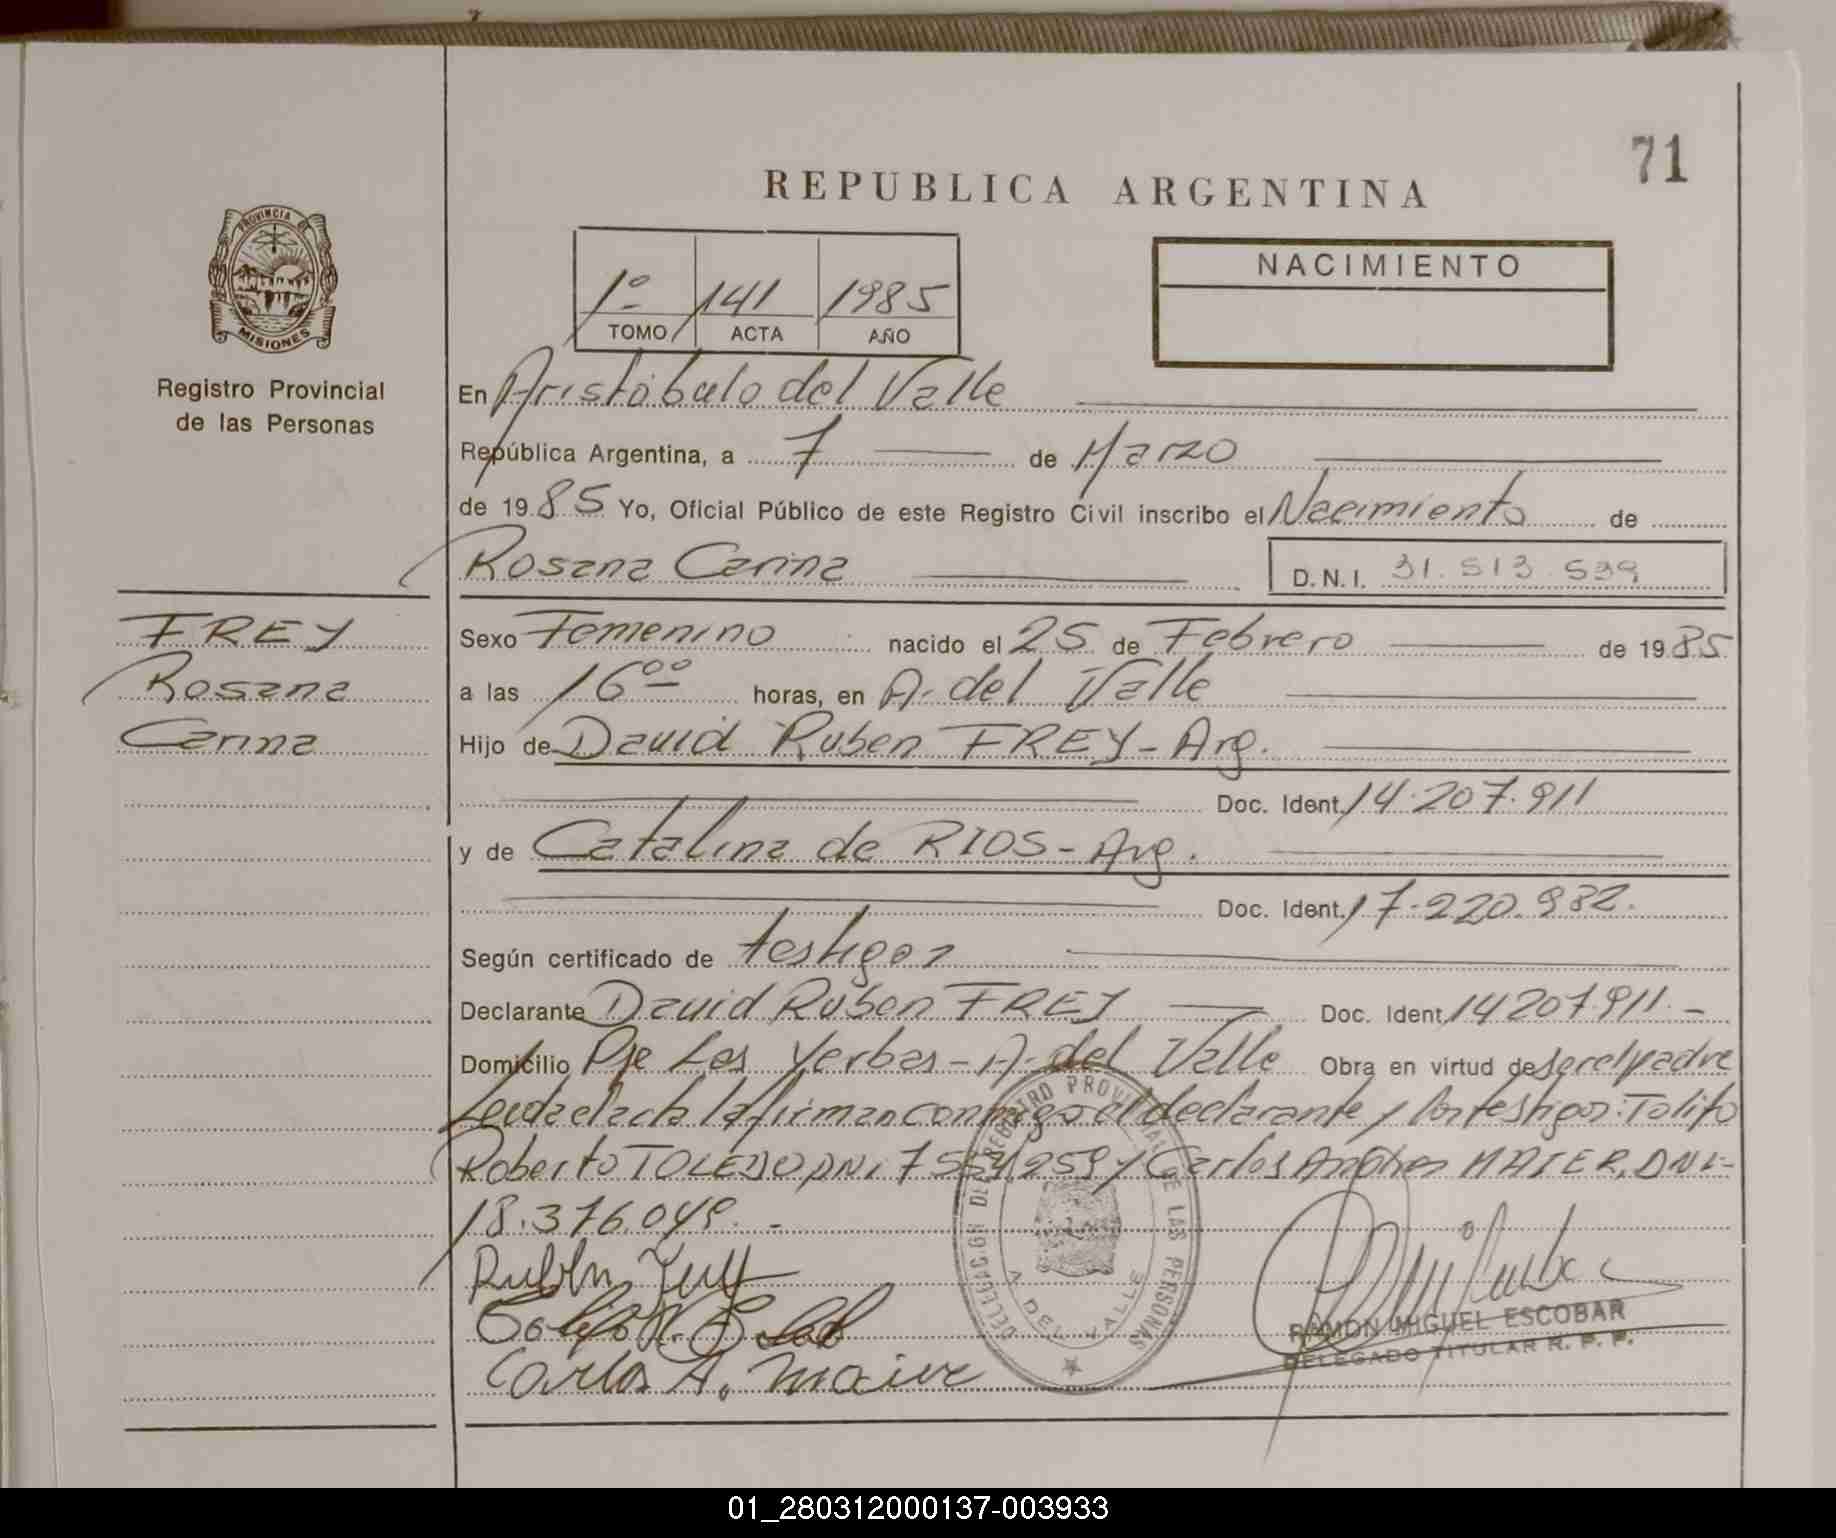 71
REPUBLICA ARGENTINA
PROVINCIA DE
MISIONES
Registro Provincial
de las Personas
1º 141 1985
TOMO ACTA AÑO
NACIMIENTO
En Aristóbulo del Valle
República Argentina, a 7 de Marzo
de 1985 Yo, Oficial Público de este Registro Civil inscribo el Nacimiento de
Rosana Carina D.N.I. 31.513.539
FREY
Rosana
Carina
Sexo Femenino nacido el 25 de Febrero de 1985
a las 16ºº horas, en A. del Valle
Hijo de David Ruben FREY - Arg.
Doc. Ident. 14.207.911
y de Catalina de RIOS - Arg.
Doc. Ident. 17.220.932.
Según certificado de testigos
Declarante David Ruben FREY Doc. Ident. 14207.911.-
Domicilio Pje Las Yerbas - A. del Valle Obra en virtud de ser el padre
Leida el acta la firman conmigo el declarante y los testigos: Tolifo
Roberto TOLEDO DNI 7.554.259 y Carlos Andres MAIER, DNI-
18.376.049.-
DELEGACION DEL REGISTRO PROVINCIAL DE LAS PERSONAS
A. DEL VALLE
Carlos A. Maier
RAMON MIGUEL ESCOBAR
DELEGADO TITULAR R. P. P.
01_280312000137-003933